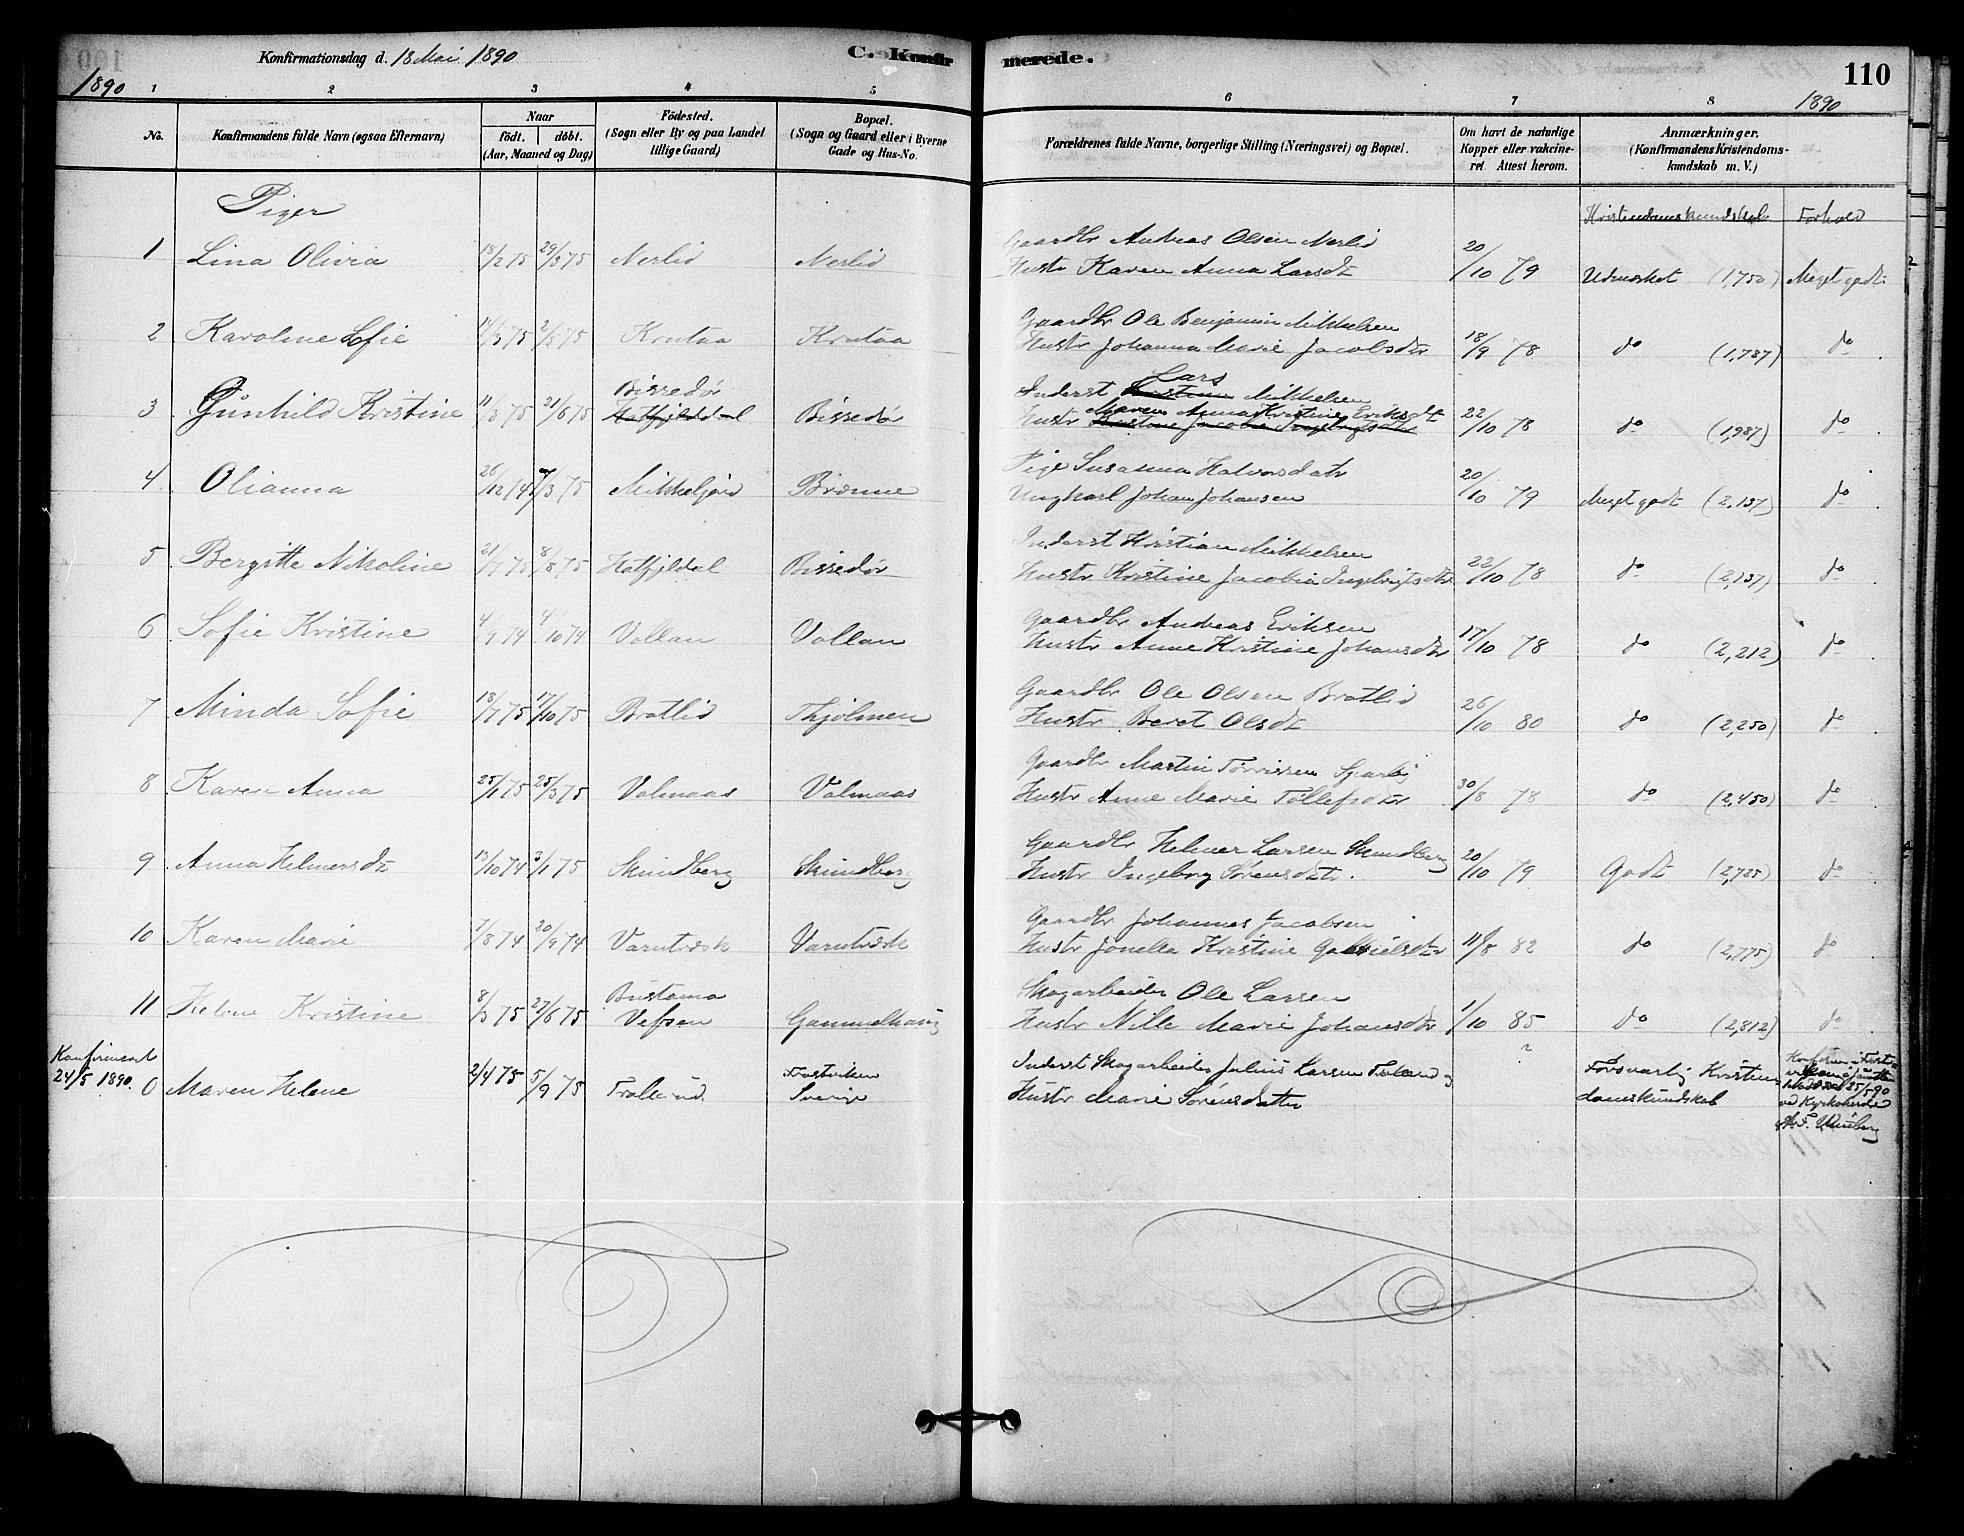 Konfirmationsdag d. 18 Mai 1890
C. Konfir
merede.
110
1890
1890
1 2 3 4 5 6 7 8
No.
Konfirmandens fulde Navn (ogsaa Efternavn)
Naar
födt. döbt.
(Aar, Maaned og Dag)
Födested.
(Sogn eller By og paa Landet
tillige Gaard)
Bopæl.
(Sogn og Gaard eller i Byerne
Gade og Hus-No.
Forældrenes fulde Navne, borgerlige Stilling (Næringsvei) og Bopæl.
Om havt de naturlige
Kopper eller vakcine-
ret. Attest herom.
Anmærkninger.
(Konfirmandens Kristendoms-
kundskab m. V.)
Piger
Kristendomskundskab Forhold
Gaardbr Andreas Olsen Nerlid
1 Lina Olivia 18/2 75 29/3 75 Nerlid Nerlid Hustr Karen Anna Larsdt 20/10 79 Udmerket (1,750) Meget godt
Gaardbr Ole Benjamin Mikkelsen
2 Karoline Sofie 17/3 75 2/5 75 Krutaa Krutaa Hustr Johanna Marie Jacobsdtr 18/9 78 do (1,787) do
Bissedør Inderst Lars Mikkelsen
3 Gunhild Kristine 11/3 75 21/6 75 Hatfjelddal Bissedør Hustr Maren Anna Kristine Eriksdt 22/10 78 do (1,987) do
Kristine Jacobia Ingebrigtsdtr
Pige Susanna Halvorsdatr
4 Olianna 26/12 74 7/3 75 Mikkeljord Brænne Ungkarl Johan Johansen 20/10 79 Meget godt (2,137) do
Inderst Kristian Mikkelsen
5 Bergitte Nikoline 21/7 75 8/8 75 Hatfjeldal Bissedør Hustr Kristine Jacobia Ingebrigtsdtr 22/10 78 do (2,137) do
Gaardbr Andreas Eriksen
6 Sofie Kristine 4/9 74 4/10 74 Vollan Vollan Hustr Anne Kristine Johansdtr 17/10 78 do (2,212) do
Gaardbr Ole Olsen Bratlid
7 Minda Sofie 18/7 75 17/10 75 Bratlid Thjolmen Hustr Beret Olsdt 26/10 80 do (2,250) do
Gaardbr Martin Tørrissen
8 Karen Anna 25/1 75 25/3 75 Volmaas Volmaas Hustr Anne Marie Tollefsdtr 30/8 78 do (2,450) do
Gaardbr Helmer Larsen Skundberg
9 Anna Helmersdt 13/10 74 3/1 75 Skundberg Skundberg Hustr Ingeborg Sørensdatr. 20/10 79 Godt (2,725) do
Gaardbr Johannes Jacobsen
10 Karen Marie 7/8 74 20/9 74 Varntræsk Varntræsk Hustr Jonella Kristine Gabrielsdtr 11/8 82 do (2,775) do
Bustamo Skogarbeider Ole Larsen
11 Helene Kristine 8/3 75 27/6 75 Vefsen Gammelhaug Hustr Nille Marie Johansdtr 1/10 85 do (2,812) do
Konfirmeret
24/5 1890. 0 Maren Helene 2/4 75 5/9 75 Sverige
Inderst Skogarbeider Julius Larsen
Hustr Marie Sørensdatter
?
Forsvarlig Kristen-
domskundskab
25/5 90
ved Kyrkoherde